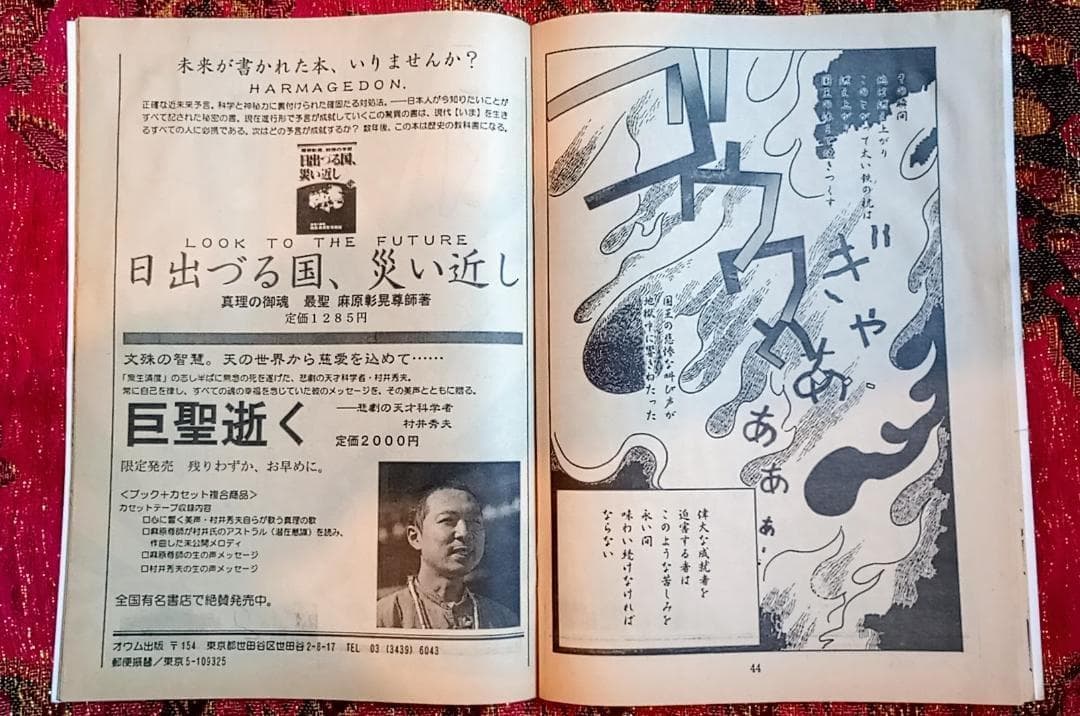 未来が書かれた本、いりませんか?
HARMAGEDON.
正確な近未来予言。科学と神秘力に裏付けられた確固たる対処法。――日本人が今知りたいことが
すべて記された秘密の書。現在進行形で予言が成就していくこの驚異の書は、現代【いま】を生き
るすべての人に必携である。次はどの予言が成就するか? 数年後、この本は歴史の教科書になる。
日出づる国、
災い近し
LOOK TO THE FUTURE
日出づる国、災い近し
真理の御魂 最聖 麻原彰晃尊師著
定価1285円
文殊の智慧。天の世界から慈愛を込めて……
「衆生済度」の志し半ばに無念の死を遂げた、悲劇の天才科学者・村井秀夫。
常に自己を律し、すべての魂の幸福を念じていた彼のメッセージを、その美声とともに贈る。
巨聖逝く
――悲劇の天才科学者
村井秀夫
定価2000円
限定発売 残りわずか、お早めに。
<ブック+カセット複合商品>
カセットテープ収録内容
□心に響く美声・村井秀夫自らが歌う真理の歌
□麻原尊師が村井氏のアストラル(潜在意識)を読み、
作曲した未公開メロディ
□麻原尊師の生の声メッセージ
□村井秀夫の生の声メッセージ
全国有名書店で絶賛発売中。
オウム出版 〒154 東京都世田谷区世田谷2-8-17 TEL 03 (3439) 6043
郵便振替/東京5-109325
その瞬間
地獄
燃え上がり
太い鉄の銃は
ゴウウ
ぎゃああああ
国王の悲惨な叫び声が
地獄中に響きわたった
偉大な成就者を
迫害する者は
このような苦しみを
永い間
味わい続けなければ
ならない
44